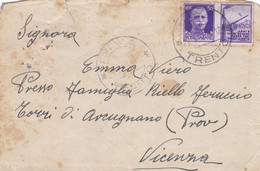 Signora
Emma Viero
Presso Famiglia Riello Feruccio
Torri di Arcugnano (Prov)
Vicenza
TRENTO